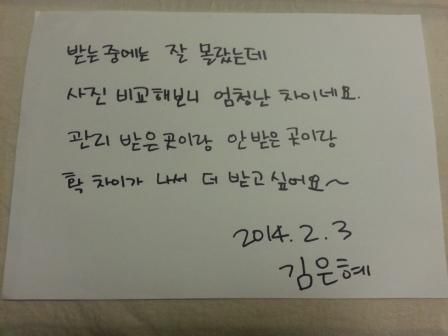 받는중에는 잘 몰랐는데
사진 비교해보니 엄청난 차이네요.
관리 받은곳이랑 안받은 곳이랑
확 차이가 나서 더 받고싶어요~
2014. 2. 3
김은혜